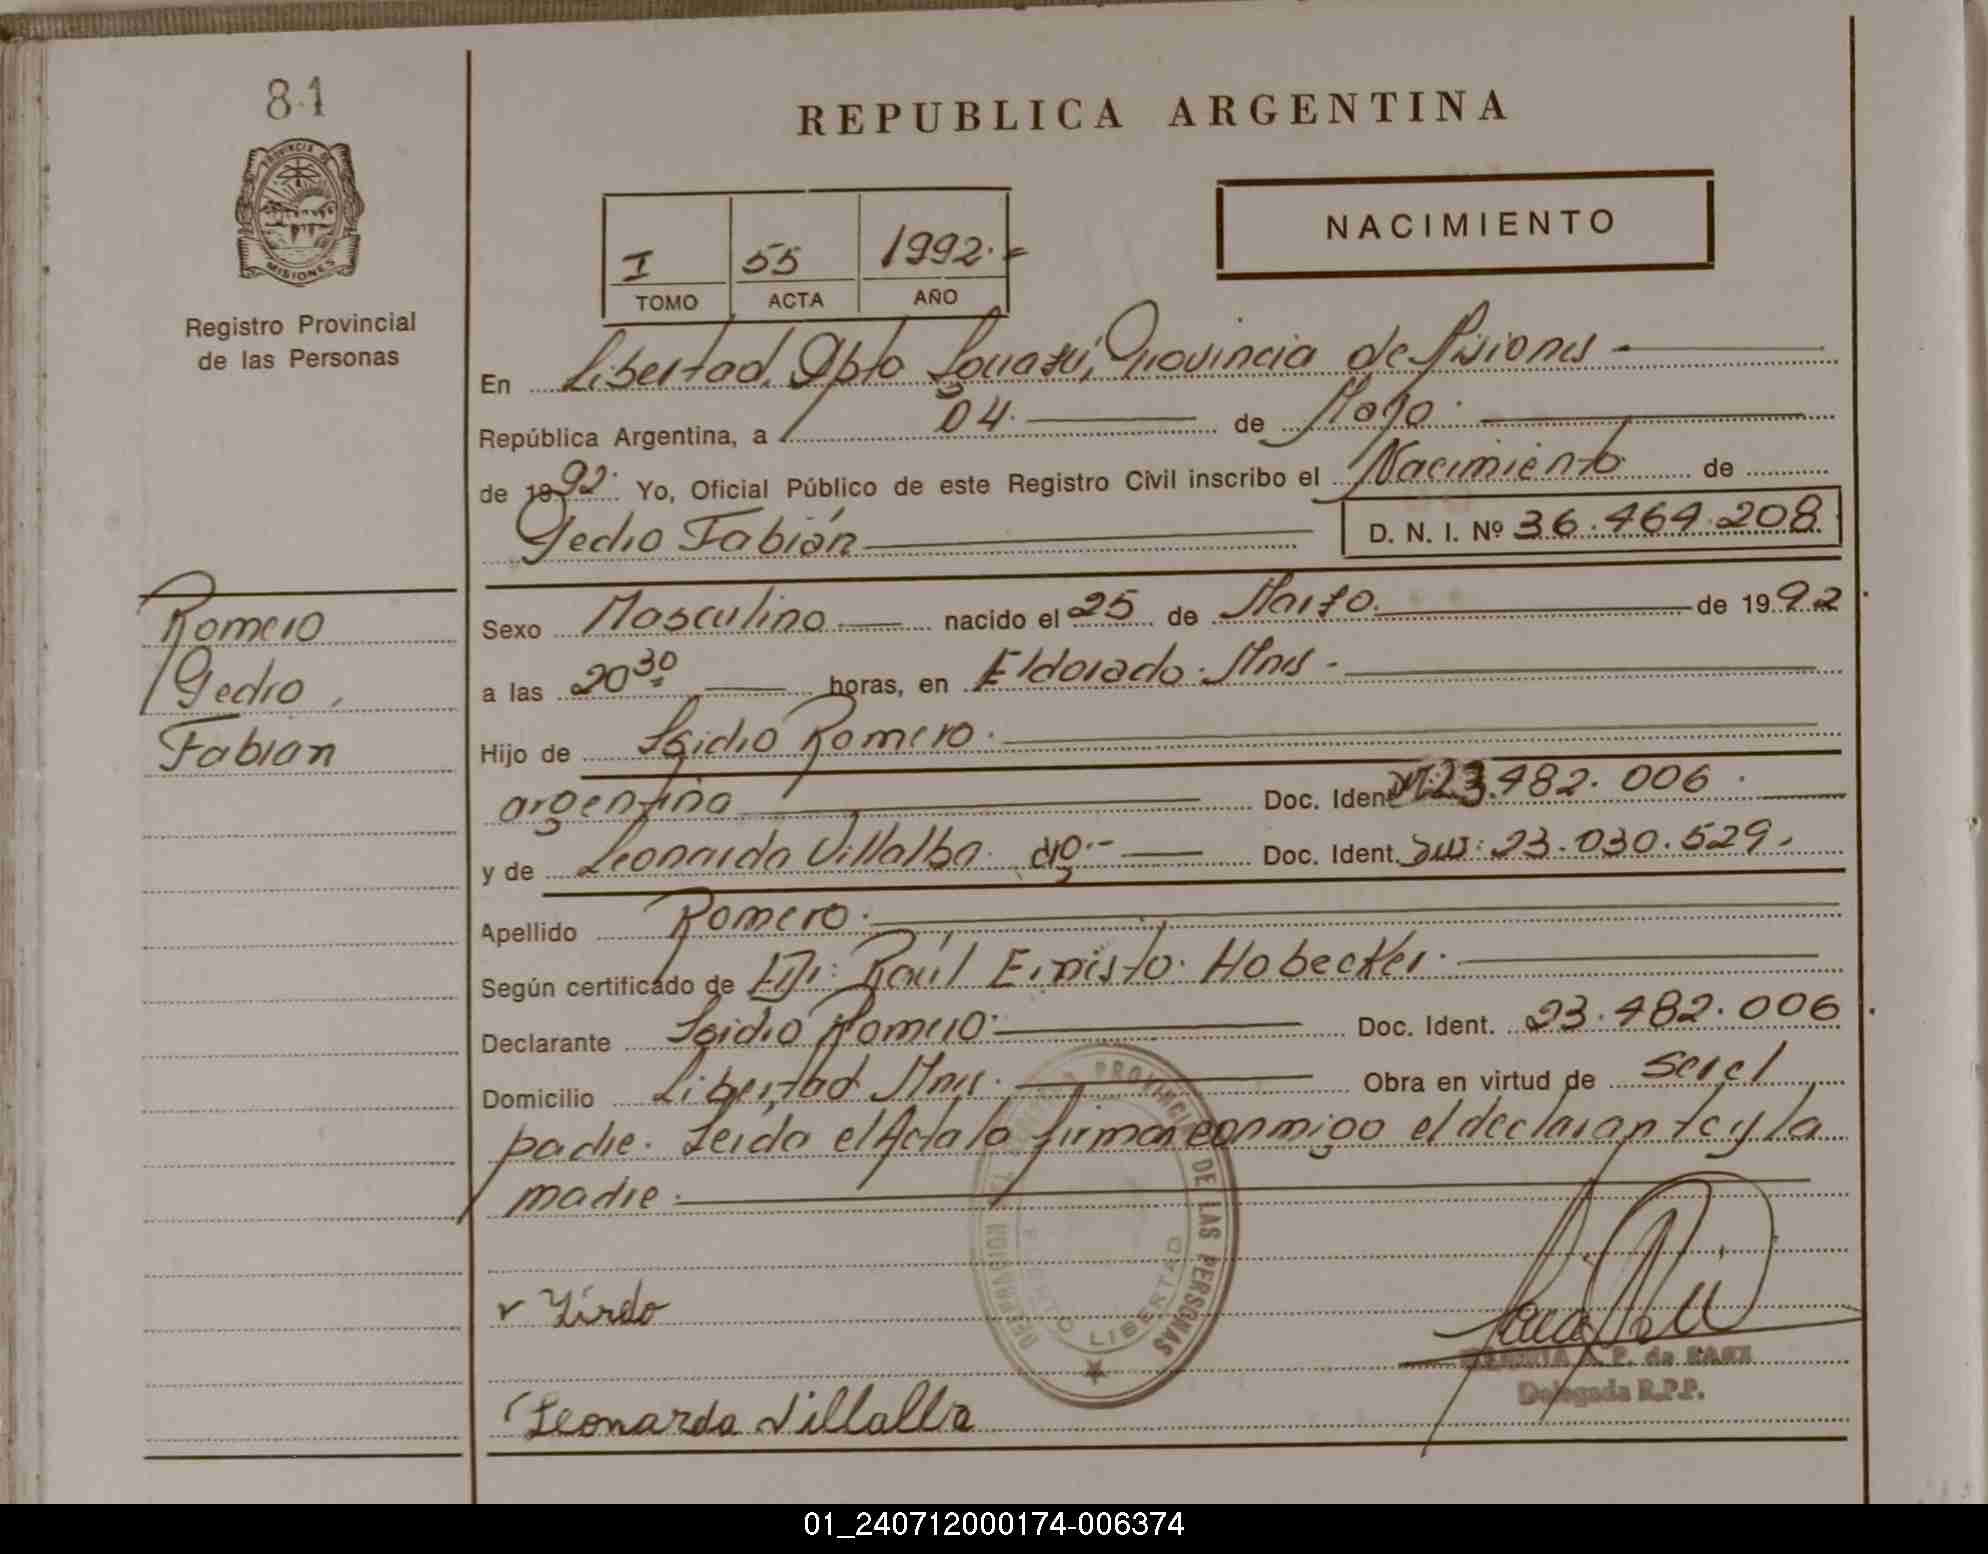 81
PROVINCIA DE
MISIONES
Registro Provincial
de las Personas
REPUBLICA ARGENTINA
NACIMIENTO
I 55 1992.=
TOMO ACTA AÑO
En Libertad, Dpto Iguazú, Provincia de Misiones
República Argentina, a 04. de Mayo.
de 1992. Yo, Oficial Público de este Registro Civil inscribo el Nacimiento de
Pedro Fabián D. N. I. Nº 36.464.208
Romero
Pedro,
Fabian
Sexo Masculino nacido el 25 de Marzo. de 1992
a las 20 30 horas, en Eldorado. Mnes.
Hijo de Isidro Romero.
argentino Doc. Ident. 23.482.006.
y de Leonarda Villalba. arg.- Doc. Ident. 23.030.529.
Apellido Romero.
Según certificado de Dr. Raúl Ernesto Hobecker.
Declarante Isidro Romero. Doc. Ident. 23.482.006
Domicilio Libertad Mnes. Obra en virtud de ser el
padre. Leída el Acta la firman conmigo el declarante y la
madre.
PROVINCIAL DE LAS PERSONAS
LIBERTAD
Leonarda Villalba
P. de SAEZ
Delegada R.P.P.
01_240712000174-006374